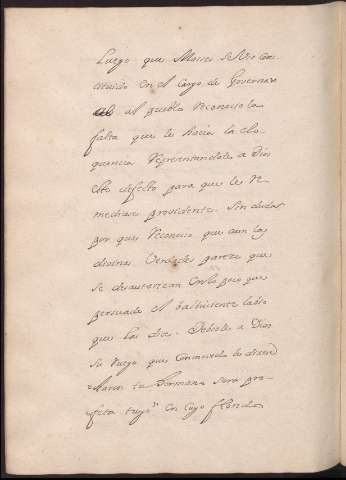 Luego que Moises se vio cons
tituido en el cargo de Governar
al pueblo reconocio la
falta que le hacia la elo
quencia Representandole a Dios
este defecto para que le re
mediase providente. Sin duda
por que reconocio que aun las
divinas Verdades parece que
se desautorizan en lo poco que
persuade el balbuciente labio
que las dice. Debiole a Dios
su ruego que le diese
Aaron tu hermano sera pro
feta tuyo en cuyo